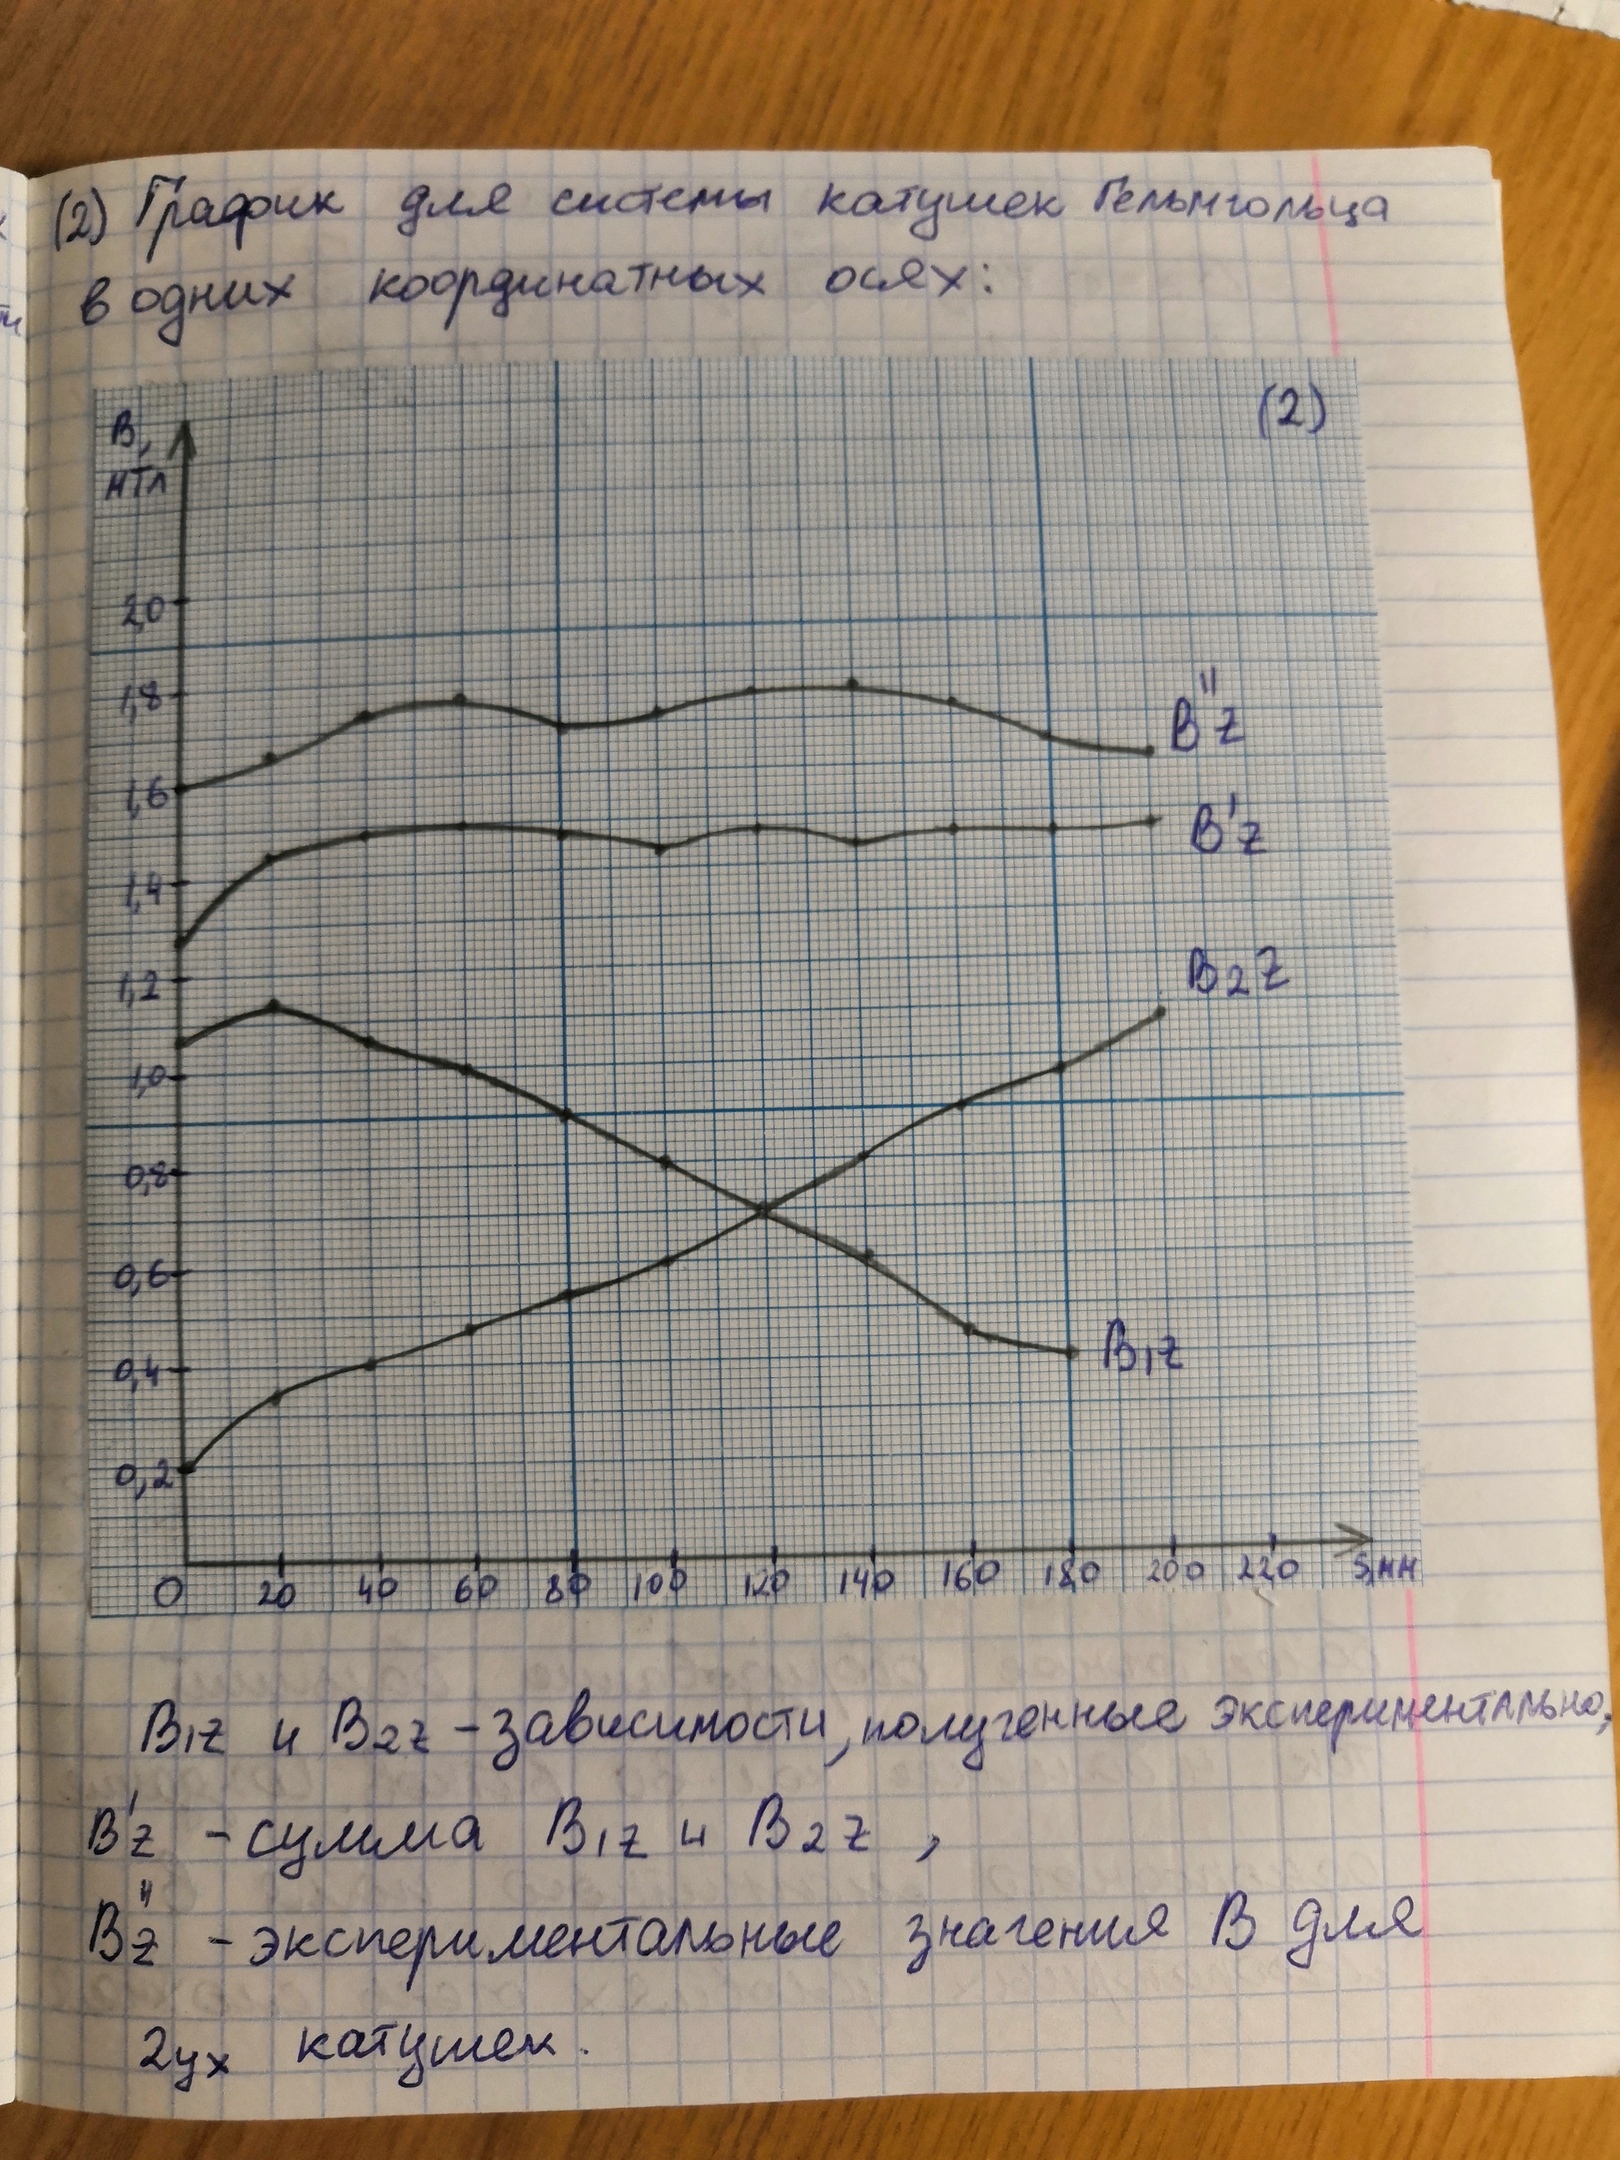 (2) График для системы катушек Гельмгольца
в одних координатных осях:
(2)
B,
мТл
2,0
1,8
B''z
1,6
B'z
1,4
1,2
B2z
1,0
0,8
0,6
0,4
B1z
0,2
0 20 40 60 80 100 120 140 160 180 200 220 S,мм
B1z и B2z – зависимости, полученные экспериментально,
B'z – сумма B1z и B2z,
B''z – экспериментальные значения B для
2ух катушек.